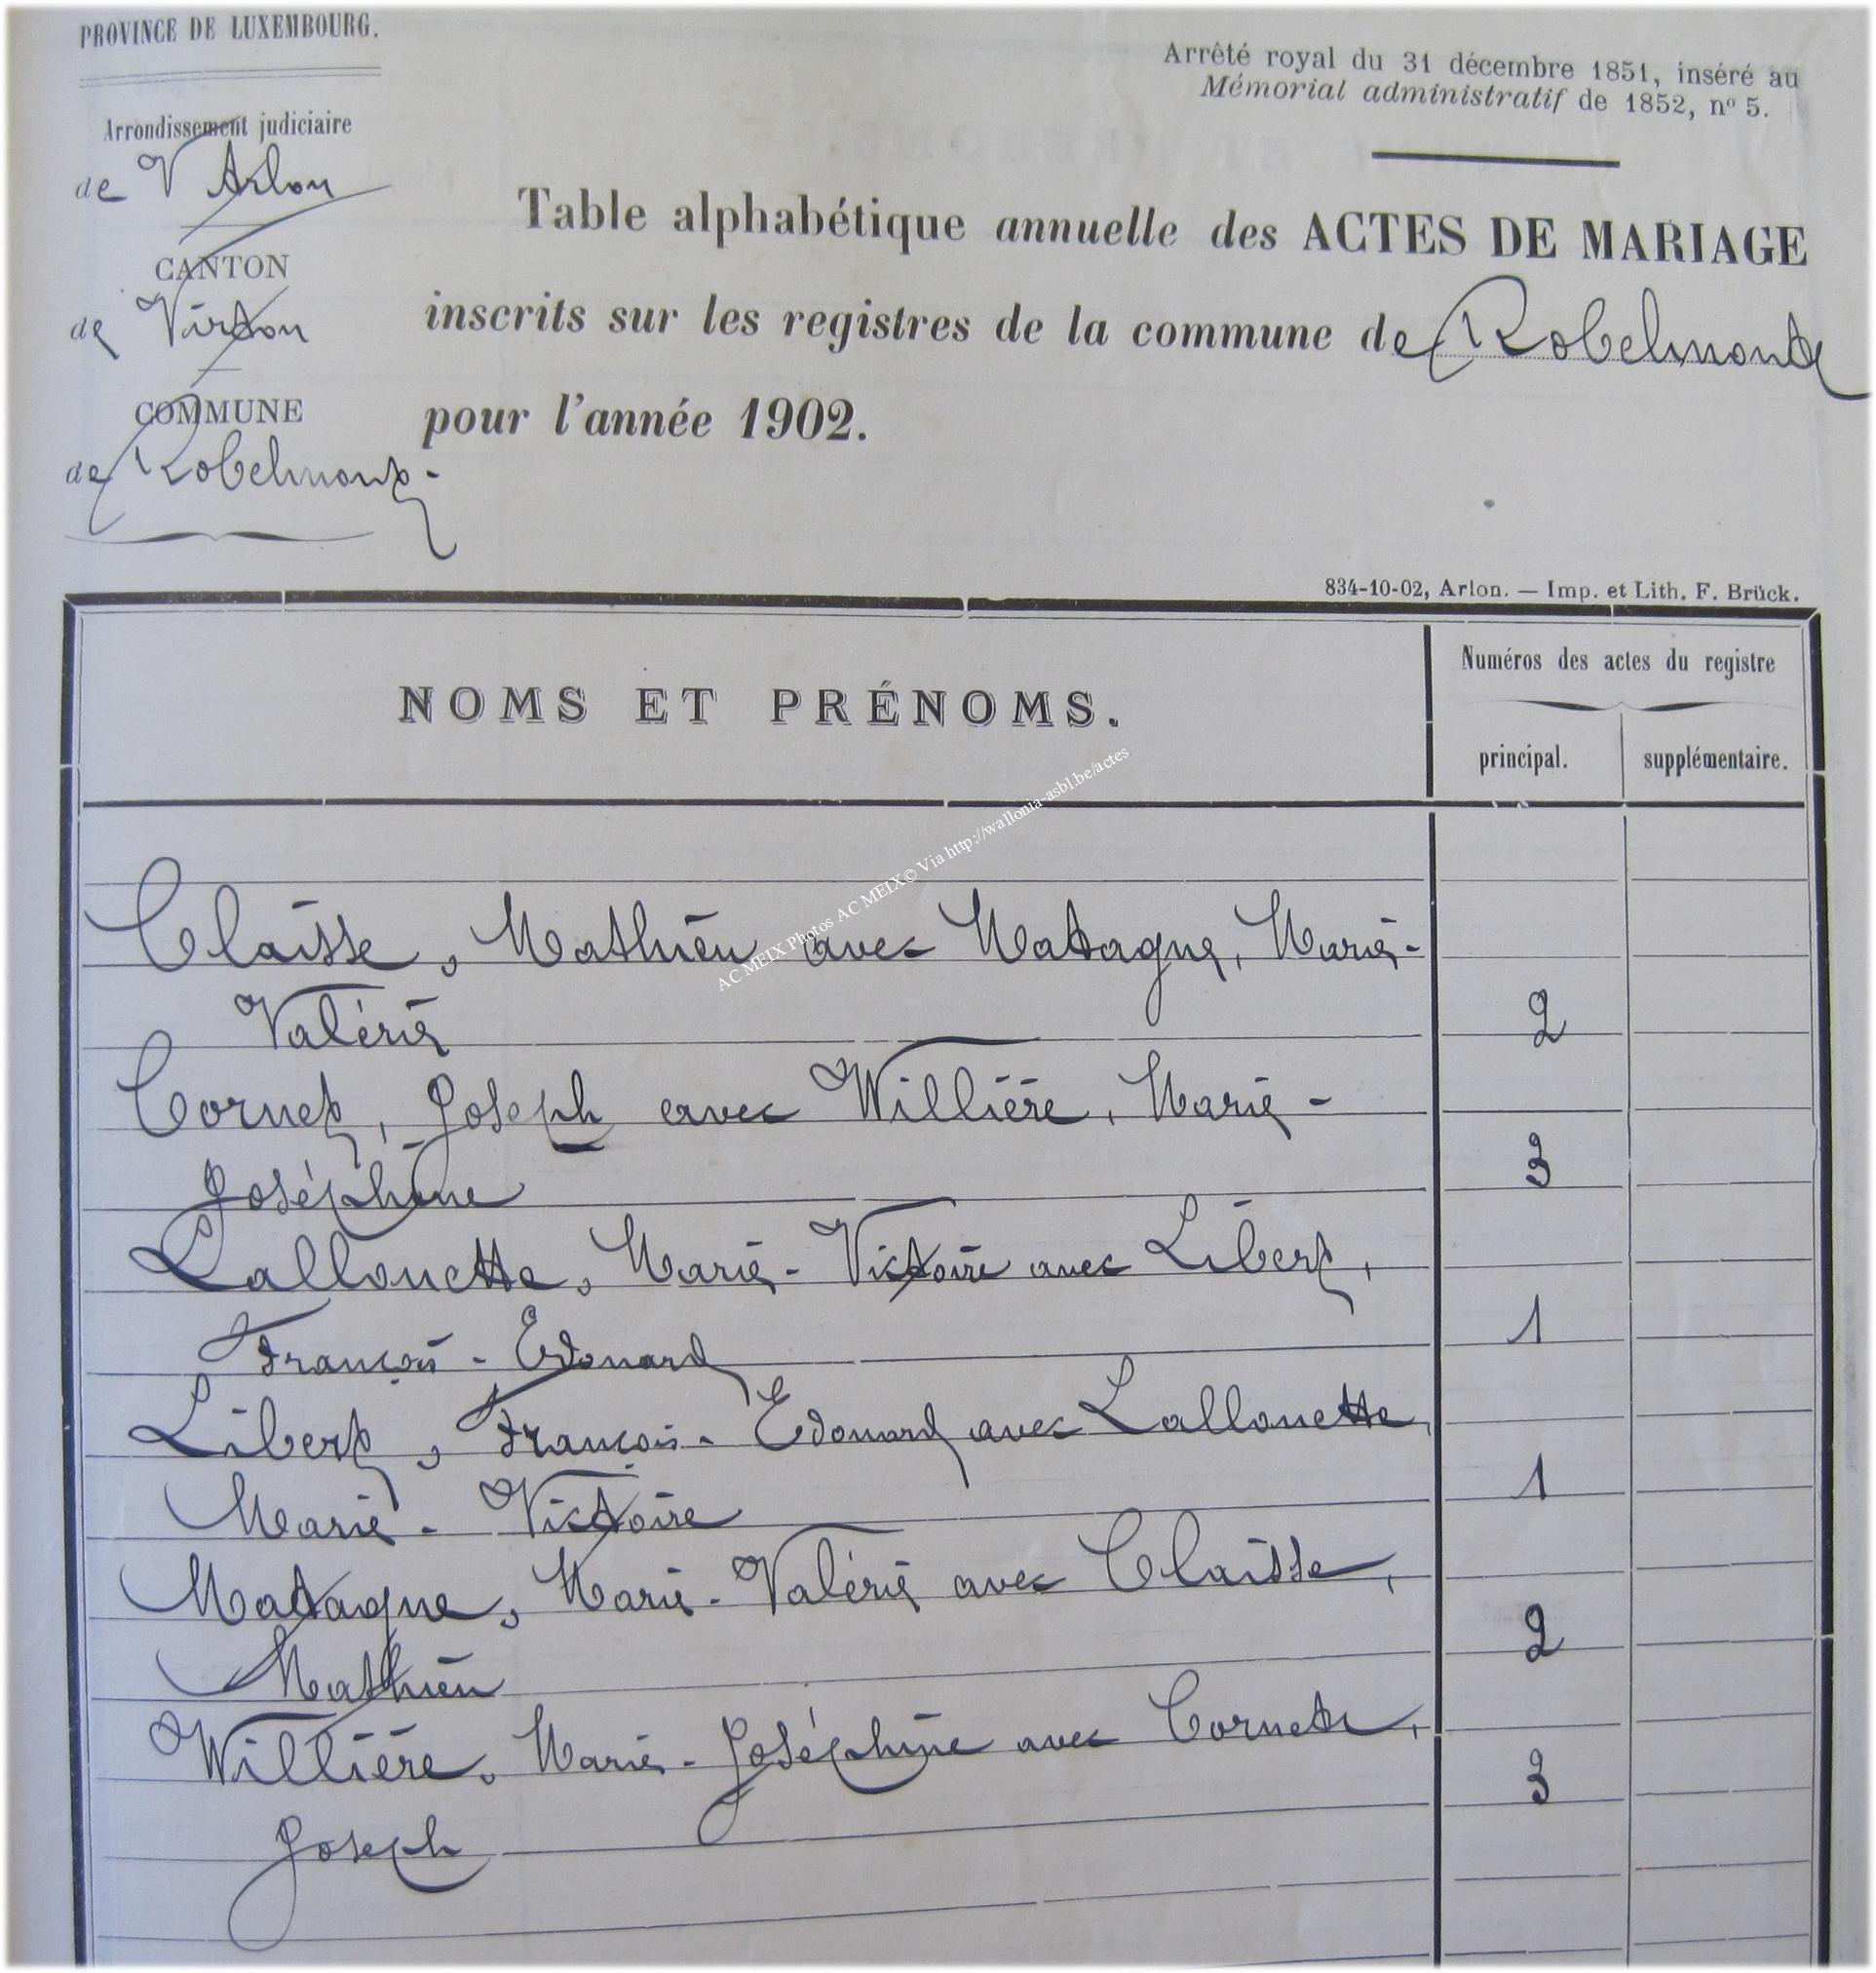 PROVINCE DE LUXEMBOURG.
Arrêté royal du 31 décembre 1851, inséré au
Mémorial administratif de 1852, nº 5.
Arrondissement judiciaire
de Arlon
CANTON
de Virton
COMMUNE
de Robelmont
Table alphabétique annuelle des ACTES DE MARIAGE
inscrits sur les registres de la commune de Robelmont
pour l'année 1902.
834-10-02, Arlon. — Imp. et Lith. F. Brück.
NOMS ET PRÉNOMS.
Numéros des actes du registre
principal. supplémentaire.
AC MEIX Photos AC MEIX© Via http://wallonia-asbl.be/actes
Claisse, Mathieu avec Matagne, Marie-
Valérie 2
Cornet, Joseph avec Willière, Marie-
Joséphine 3
Lallouette, Marie-Victoire avec Libert,
François-Edouard 1
Libert, François-Edouard avec Lallouette,
Marie-Victoire 1
Matagne, Marie-Valérie avec Claisse,
Mathieu 2
Willière, Marie-Joséphine avec Cornet,
Joseph 3